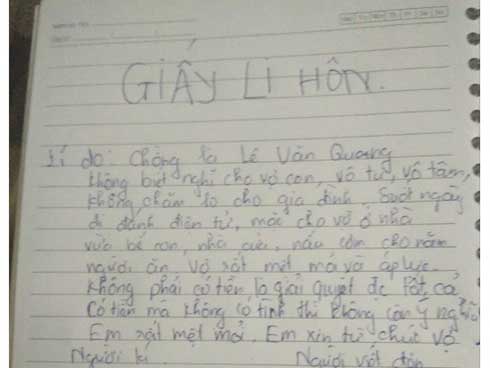 GIẤY LI HÔN.
Lí do: Chồng là Lê Văn Quang
không biết nghĩ cho vợ con, vô tư, vô tâm,
không chăm lo cho gia đình. Suốt ngày
đi đánh điện tử, mặc cho vợ ở nhà
vừa bế con, nhà cửa, nấu cơm cho năm
người ăn. Vợ rất mệt mỏi và áp lực.
Không phải có tiền là giải quyết đc tất cả
Có tiền mà không có tình thì không còn ý nghĩa
Em rất mệt mỏi, Em xin từ chức vợ
Người kí Người viết đơn